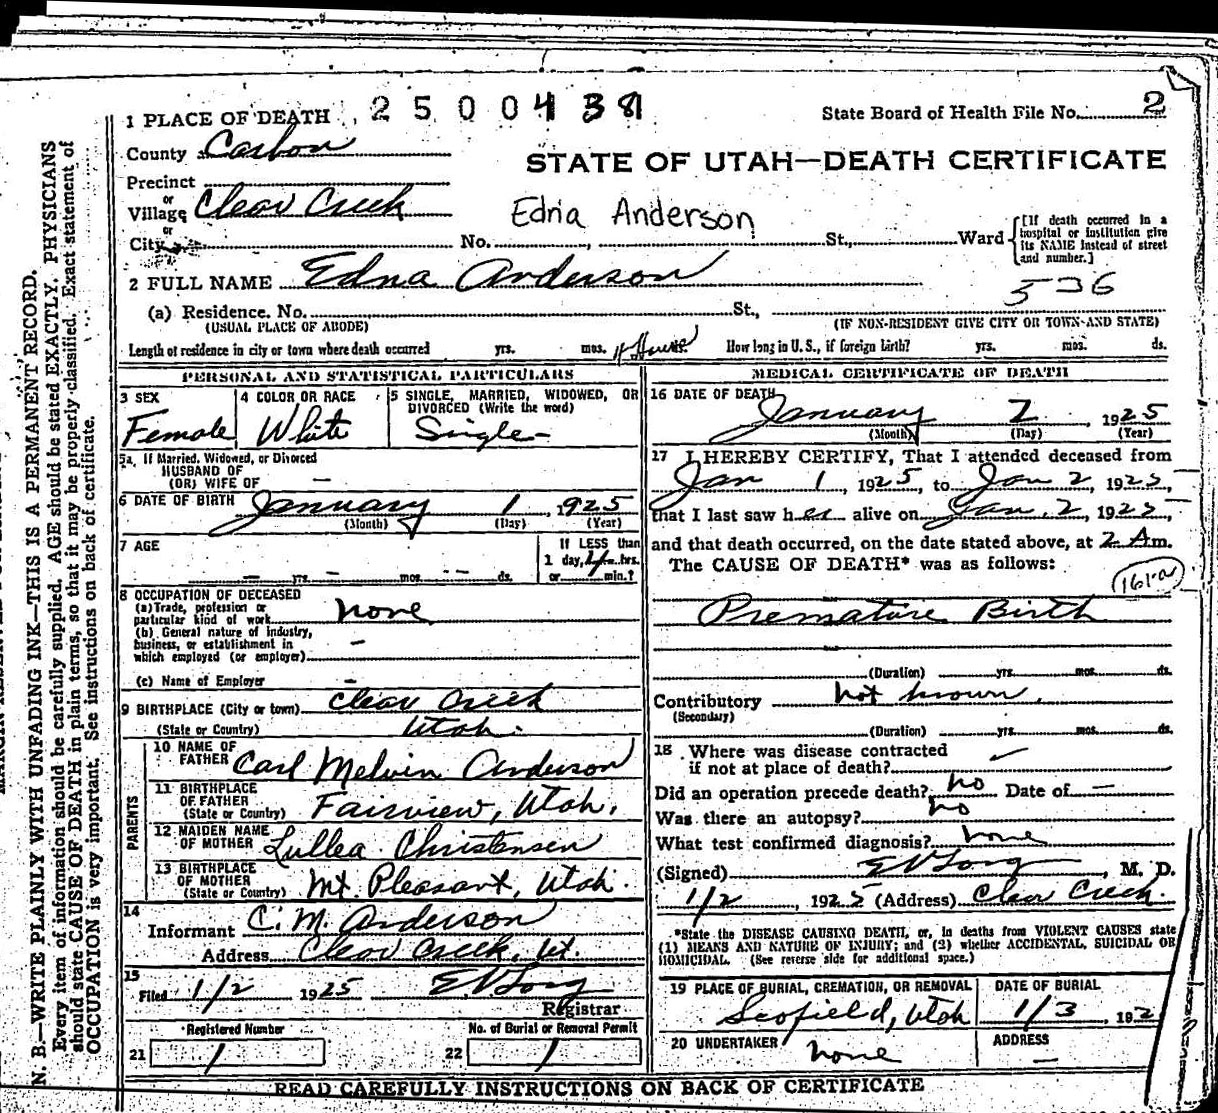 1 PLACE OF DEATH 2 5 0 0 4 3 8 State Board of Health File No. 2
County Carbon
STATE OF UTAH—DEATH CERTIFICATE
Precinct
or
Village Clear Creek
Edna Anderson
or
City No. , St., Ward
[If death occurred in a hospital or institution give its NAME instead of street and number.]
2 FULL NAME Edna Anderson
536
(a) Residence. No. St.,
(USUAL PLACE OF ABODE) (IF NON-RESIDENT GIVE CITY OR TOWN AND STATE)
Length of residence in city or town where death occurred yrs. mos. Hours. How long in U. S., if foreign birth? yrs. mos. ds.
PERSONAL AND STATISTICAL PARTICULARS
3 SEX
Female
4 COLOR OR RACE
White
5 SINGLE, MARRIED, WIDOWED, OR
DIVORCED (Write the word)
Single
5a. If Married, Widowed, or Divorced
HUSBAND OF
(OR) WIFE OF —
6 DATE OF BIRTH January 1, 1925
(Month) (Day) (Year)
7 AGE
— yrs. — mos. — ds.
If LESS than
1 day, hrs.
or min.?
8 OCCUPATION OF DECEASED
(a) Trade, profession or
particular kind of work none
(b) General nature of industry,
business, or establishment in
which employed (or employer) —
(c) Name of Employer —
9 BIRTHPLACE (City or town) Clear Creek
(State or Country) Utah.
PARENTS
10 NAME OF
FATHER Carl Melvin Anderson
11 BIRTHPLACE
OF FATHER
(State or Country) Fairview, Utah.
12 MAIDEN NAME
OF MOTHER Lullea Christensen
13 BIRTHPLACE
OF MOTHER
(State or Country) Mt. Pleasant, Utah.
14
Informant C. M. Anderson
Address Clear Creek, Ut.
15
Filed 1/2 1925 E V Long
Registrar
Registered Number No. of Burial or Removal Permit
21 1 22 1
MEDICAL CERTIFICATE OF DEATH
16 DATE OF DEATH
January 2 1925
(Month) (Day) (Year)
17 I HEREBY CERTIFY, That I attended deceased from
Jan 1, 1925, to Jan 2, 1925,
that I last saw her alive on Jan. 2, 1925,
and that death occurred, on the date stated above, at 2 Am.
The CAUSE OF DEATH* was as follows:
161-a
Premature Birth
(Duration) yrs. mos. ds.
Contributory not known.
(Secondary)
(Duration) yrs. mos. ds.
18 Where was disease contracted
if not at place of death?
Did an operation precede death? no Date of —
Was there an autopsy? no
What test confirmed diagnosis? none
(Signed) E V Long, M. D.
1/2, 1925 (Address) Clear Creek.
*State the DISEASE CAUSING DEATH, or, in deaths from VIOLENT CAUSES state
(1) MEANS AND NATURE OF INJURY; and (2) whether ACCIDENTAL, SUICIDAL OR
HOMICIDAL. (See reverse side for additional space.)
19 PLACE OF BURIAL, CREMATION, OR REMOVAL
Scofield, Utah
DATE OF BURIAL
1/3, 192
20 UNDERTAKER
none
ADDRESS
—
READ CAREFULLY INSTRUCTIONS ON BACK OF CERTIFICATE
N. B.—WRITE PLAINLY WITH UNFADING INK—THIS IS A PERMANENT RECORD.
Every item of information should be carefully supplied. AGE should be stated EXACTLY. PHYSICIANS
should state CAUSE OF DEATH in plain terms, so that it may be properly classified. Exact statement of
OCCUPATION is very important. See instructions on back of certificate.